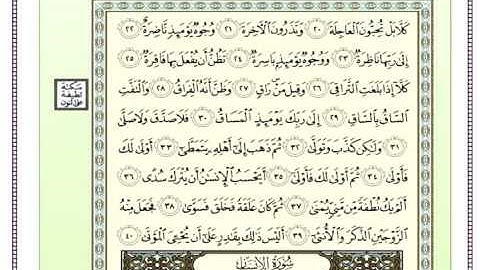 كَلَّا بَلْ تُحِبُّونَ ٱلْعَاجِلَةَ ٢٠ وَتَذَرُونَ ٱلْءَاخِرَةَ ٢١ وُجُوهٌ يَوْمَئِذٍ نَّاضِرَةٌ ٢٢
إِلَىٰ رَبِّهَا نَاظِرَةٌ ٢٣ وَوُجُوهٌ يَوْمَئِذٍۭ بَاسِرَةٌ ٢٤ تَظُنُّ أَن يُفْعَلَ بِهَا فَاقِرَةٌ ٢٥
كَلَّآ إِذَا بَلَغَتِ ٱلتَّرَاقِىَ ٢٦ وَقِيلَ مَنْ رَاقٍ ٢٧ وَظَنَّ أَنَّهُ ٱلْفِرَاقُ ٢٨ وَٱلْتَفَّتِ
ٱلسَّاقُ بِٱلسَّاقِ ٢٩ إِلَىٰ رَبِّكَ يَوْمَئِذٍ ٱلْمَسَاقُ ٣٠ فَلَا صَدَّقَ وَلَا صَلَّىٰ
٣١ وَلَٰكِن كَذَّبَ وَتَوَلَّىٰ ٣٢ ثُمَّ ذَهَبَ إِلَىٰٓ أَهْلِهِۦ يَتَمَطَّىٰٓ ٣٣ أَوْلَىٰ لَكَ
فَأَوْلَىٰ ٣٤ ثُمَّ أَوْلَىٰ لَكَ فَأَوْلَىٰٓ ٣٥ أَيَحْسَبُ ٱلْإِنسَٰنُ أَن يُتْرَكَ سُدًى ٣٦
أَلَمْ يَكُ نُطْفَةً مِّن مَّنِىٍّ يُمْنَىٰ ٣٧ ثُمَّ كَانَ عَلَقَةً فَخَلَقَ فَسَوَّىٰ ٣٨ فَجَعَلَ مِنْهُ
ٱلزَّوْجَيْنِ ٱلذَّكَرَ وَٱلْأُنثَىٰٓ ٣٩ أَلَيْسَ ذَٰلِكَ بِقَٰدِرٍ عَلَىٰٓ أَن يُحْـِۧىَ ٱلْمَوْتَىٰ ٤٠
سُورَةُ الإِنسَانِ
سكتة
لطيفة
على النون